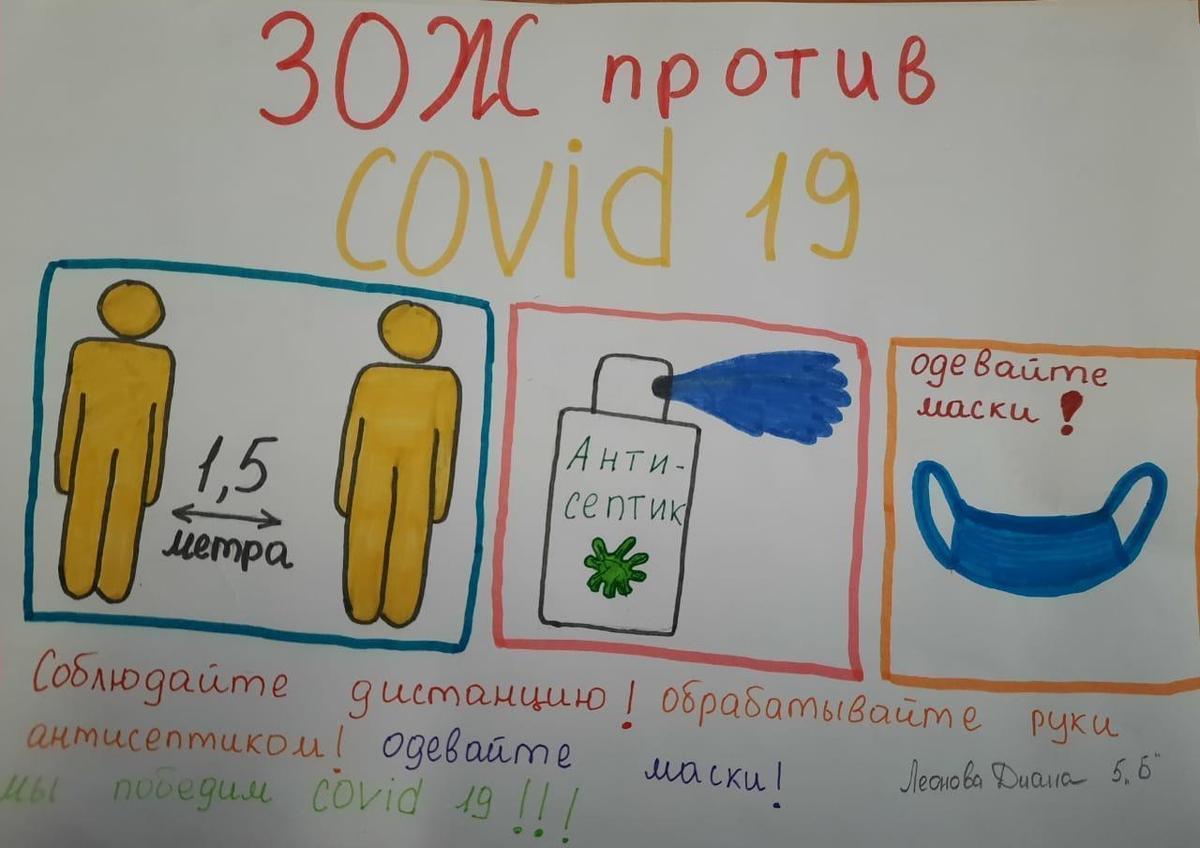 ЗОЖ против
covid 19
1,5
метра
Анти-
септик
одевайте
маски!
Соблюдайте дистанцию! обрабатывайте руки
антисептиком! одевайте маски!
мы победим covid 19!!!
Леонова Диана 5„Б“